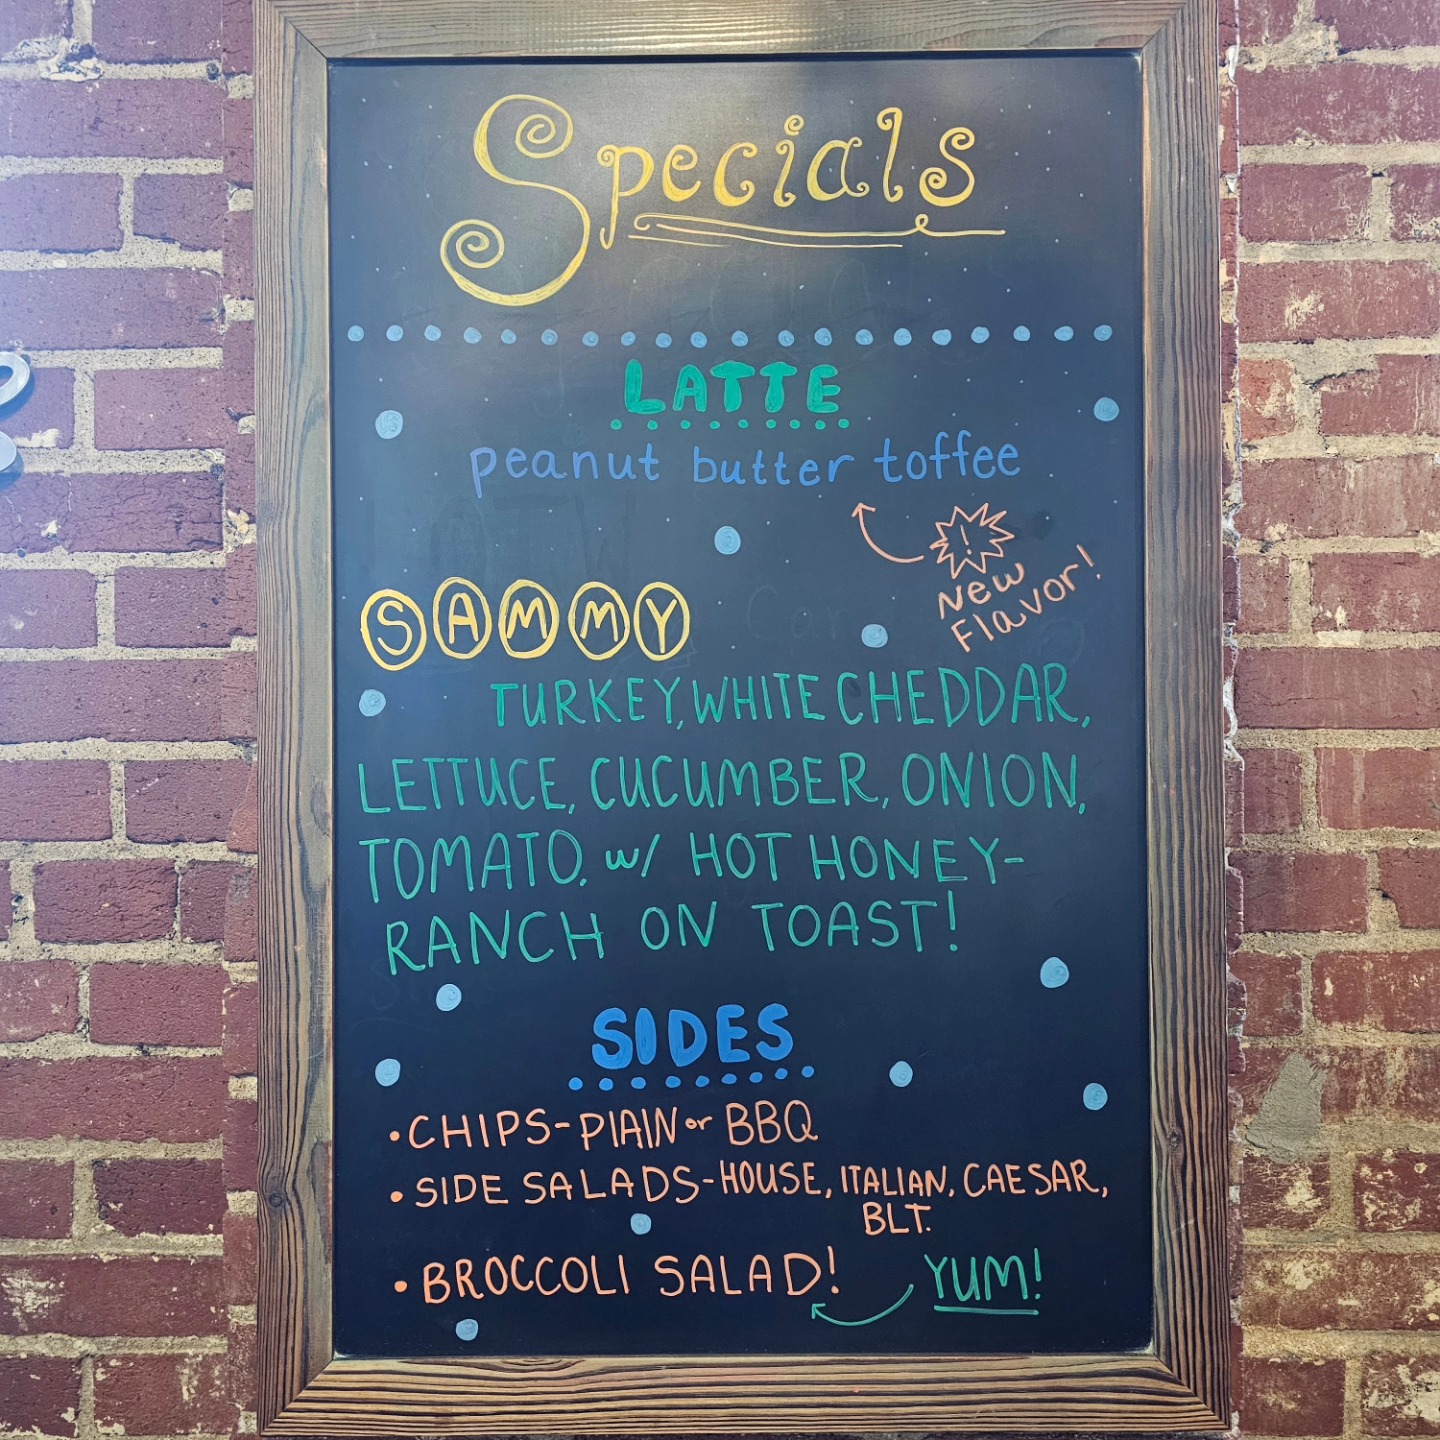 Specials
LATTE
peanut butter toffee
!
New
Flavor!
SAMMY
TURKEY, WHITE CHEDDAR,
LETTUCE, CUCUMBER, ONION,
TOMATO. w/ HOT HONEY-
RANCH ON TOAST!
SIDES
•CHIPS-PlAIN or BBQ
•SIDE SALADS-HOUSE, ITALIAN, CAESAR,
BLT.
•BROCCOLI SALAD!
YUM!